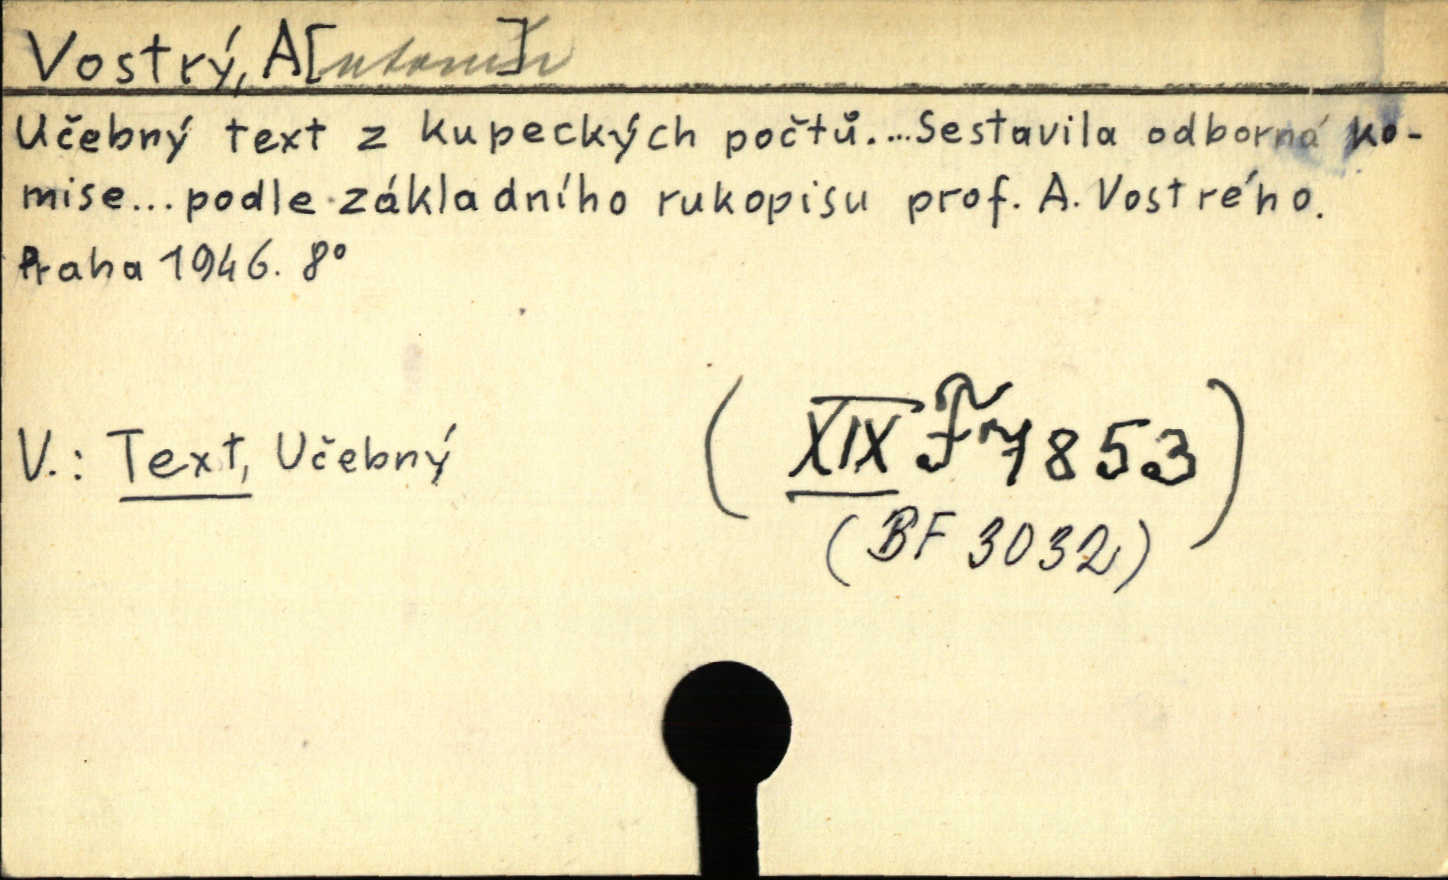 Vostrý, A[ntonín]
Učebný text z kupeckých počtů....Sestavila odborná ko-
mise...podle základního rukopisu prof. A. Vostrého.
Praha 1946. 8°
V.: Text, Učebný
(XIX F 7853)
(BF 3032)